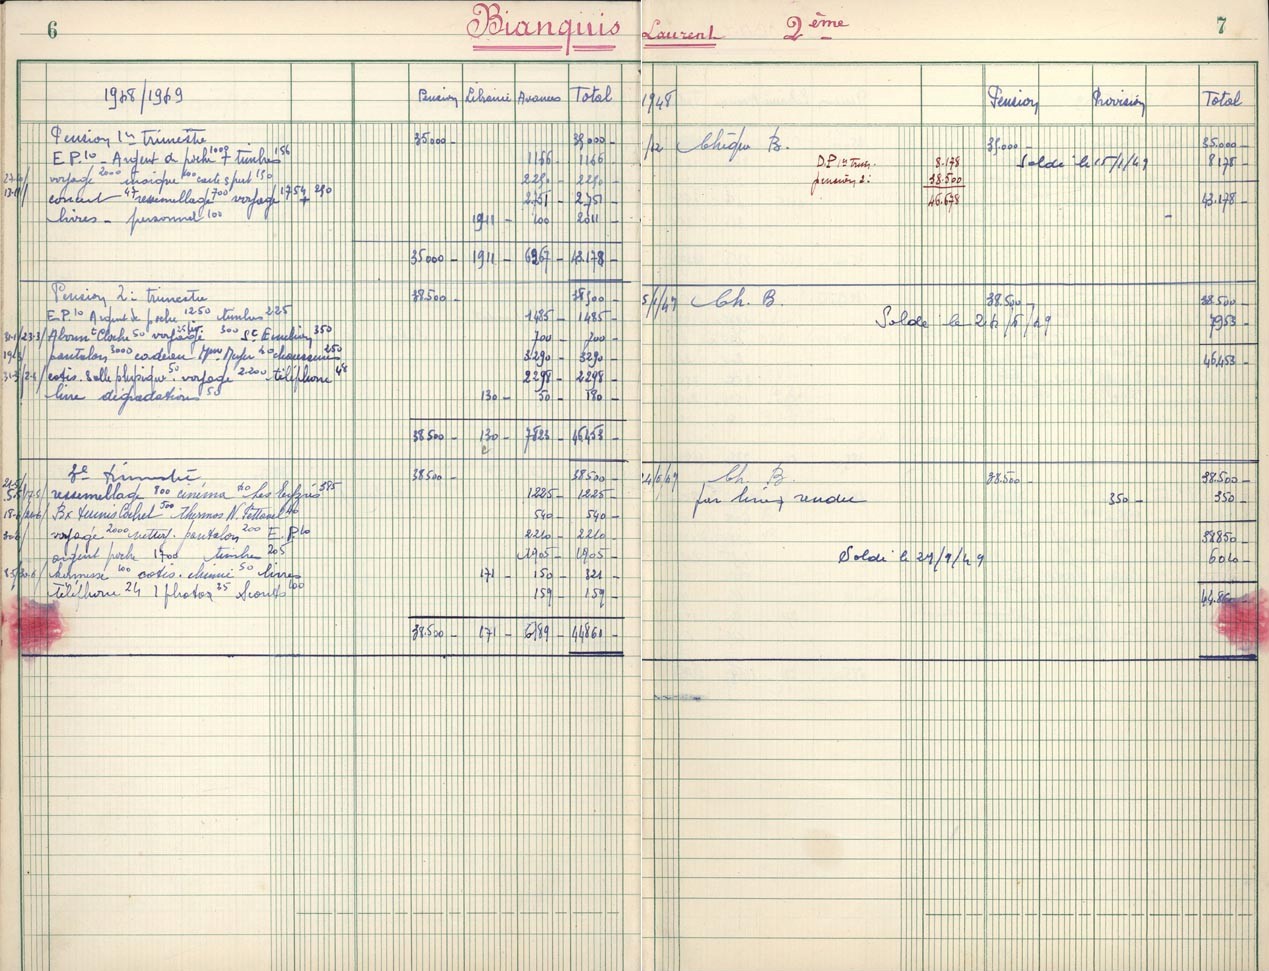 6
Bianquis Laurent 2ème
7
1948/1949 Pension Librairie Avances Total
Pension 1er trimestre 35000 - 35000 -
E.P. 10 - Argent de poche 1000 timbres 156 1166 - 1166 -
voyage 2000 musique 100 carte sport 150 2250 - 2250 -
concert 47 ressemellage 700 voyage 1754 + 250 2.751 - 2.751 -
livres - personnel 100 1911 - 100 - 2011 -
35000 - 1911 - 6267 - 43.178 -
Pension 2e trimestre 38.500 - 38.500 -
E.P. 10 Argent de poche 1250 timbres 225 1485 - 1485 -
Cloche 50 voyage 300 St Emilion 350 700 - 700 -
pantalon 3000 cadeau Mme 40 chaussures 250 3290 - 3290 -
cotis. Salle physique 50 voyage 2.200 téléphone 48 2298 - 2298 -
livre dégradations 50 130 - 50 - 180 -
38500 - 130 - 7823 - 46453 -
3e trimestre 38500 - 38500 -
ressemellage 800 cinéma 40 385 1225 - 1225 -
Bx tennis 500 thermos 40 540 - 540 -
voyage 2000 nettoy. pantalon 200 E.P. 10 2210 - 2210 -
argent poche 1700 timbres 205 1905 - 1905 -
kermesse 100 cotis. chimie 50 livres 171 - 150 - 321 -
téléphone 24 1 photos 35 Scouts 100 159 - 159 -
38.500 - 171 - 6189 - 44860 -
1948 Pension Provision Total
/12 Chèque B. 35000 - 35.000 -
D.P 1er Trim. 8.178 Soldé le 15/1/49 8178 -
pension 2e 38.500
46.678 43.178 -
5/1/49 Ch. B. 38.500 - 38.500 -
Soldé le 7953 -
46,453 -
Ch. B. 38.500 - 38.500 -
par livres rendu 350 - 350 -
38850 -
Soldé le 27/9/49 6010 -
44.860 -